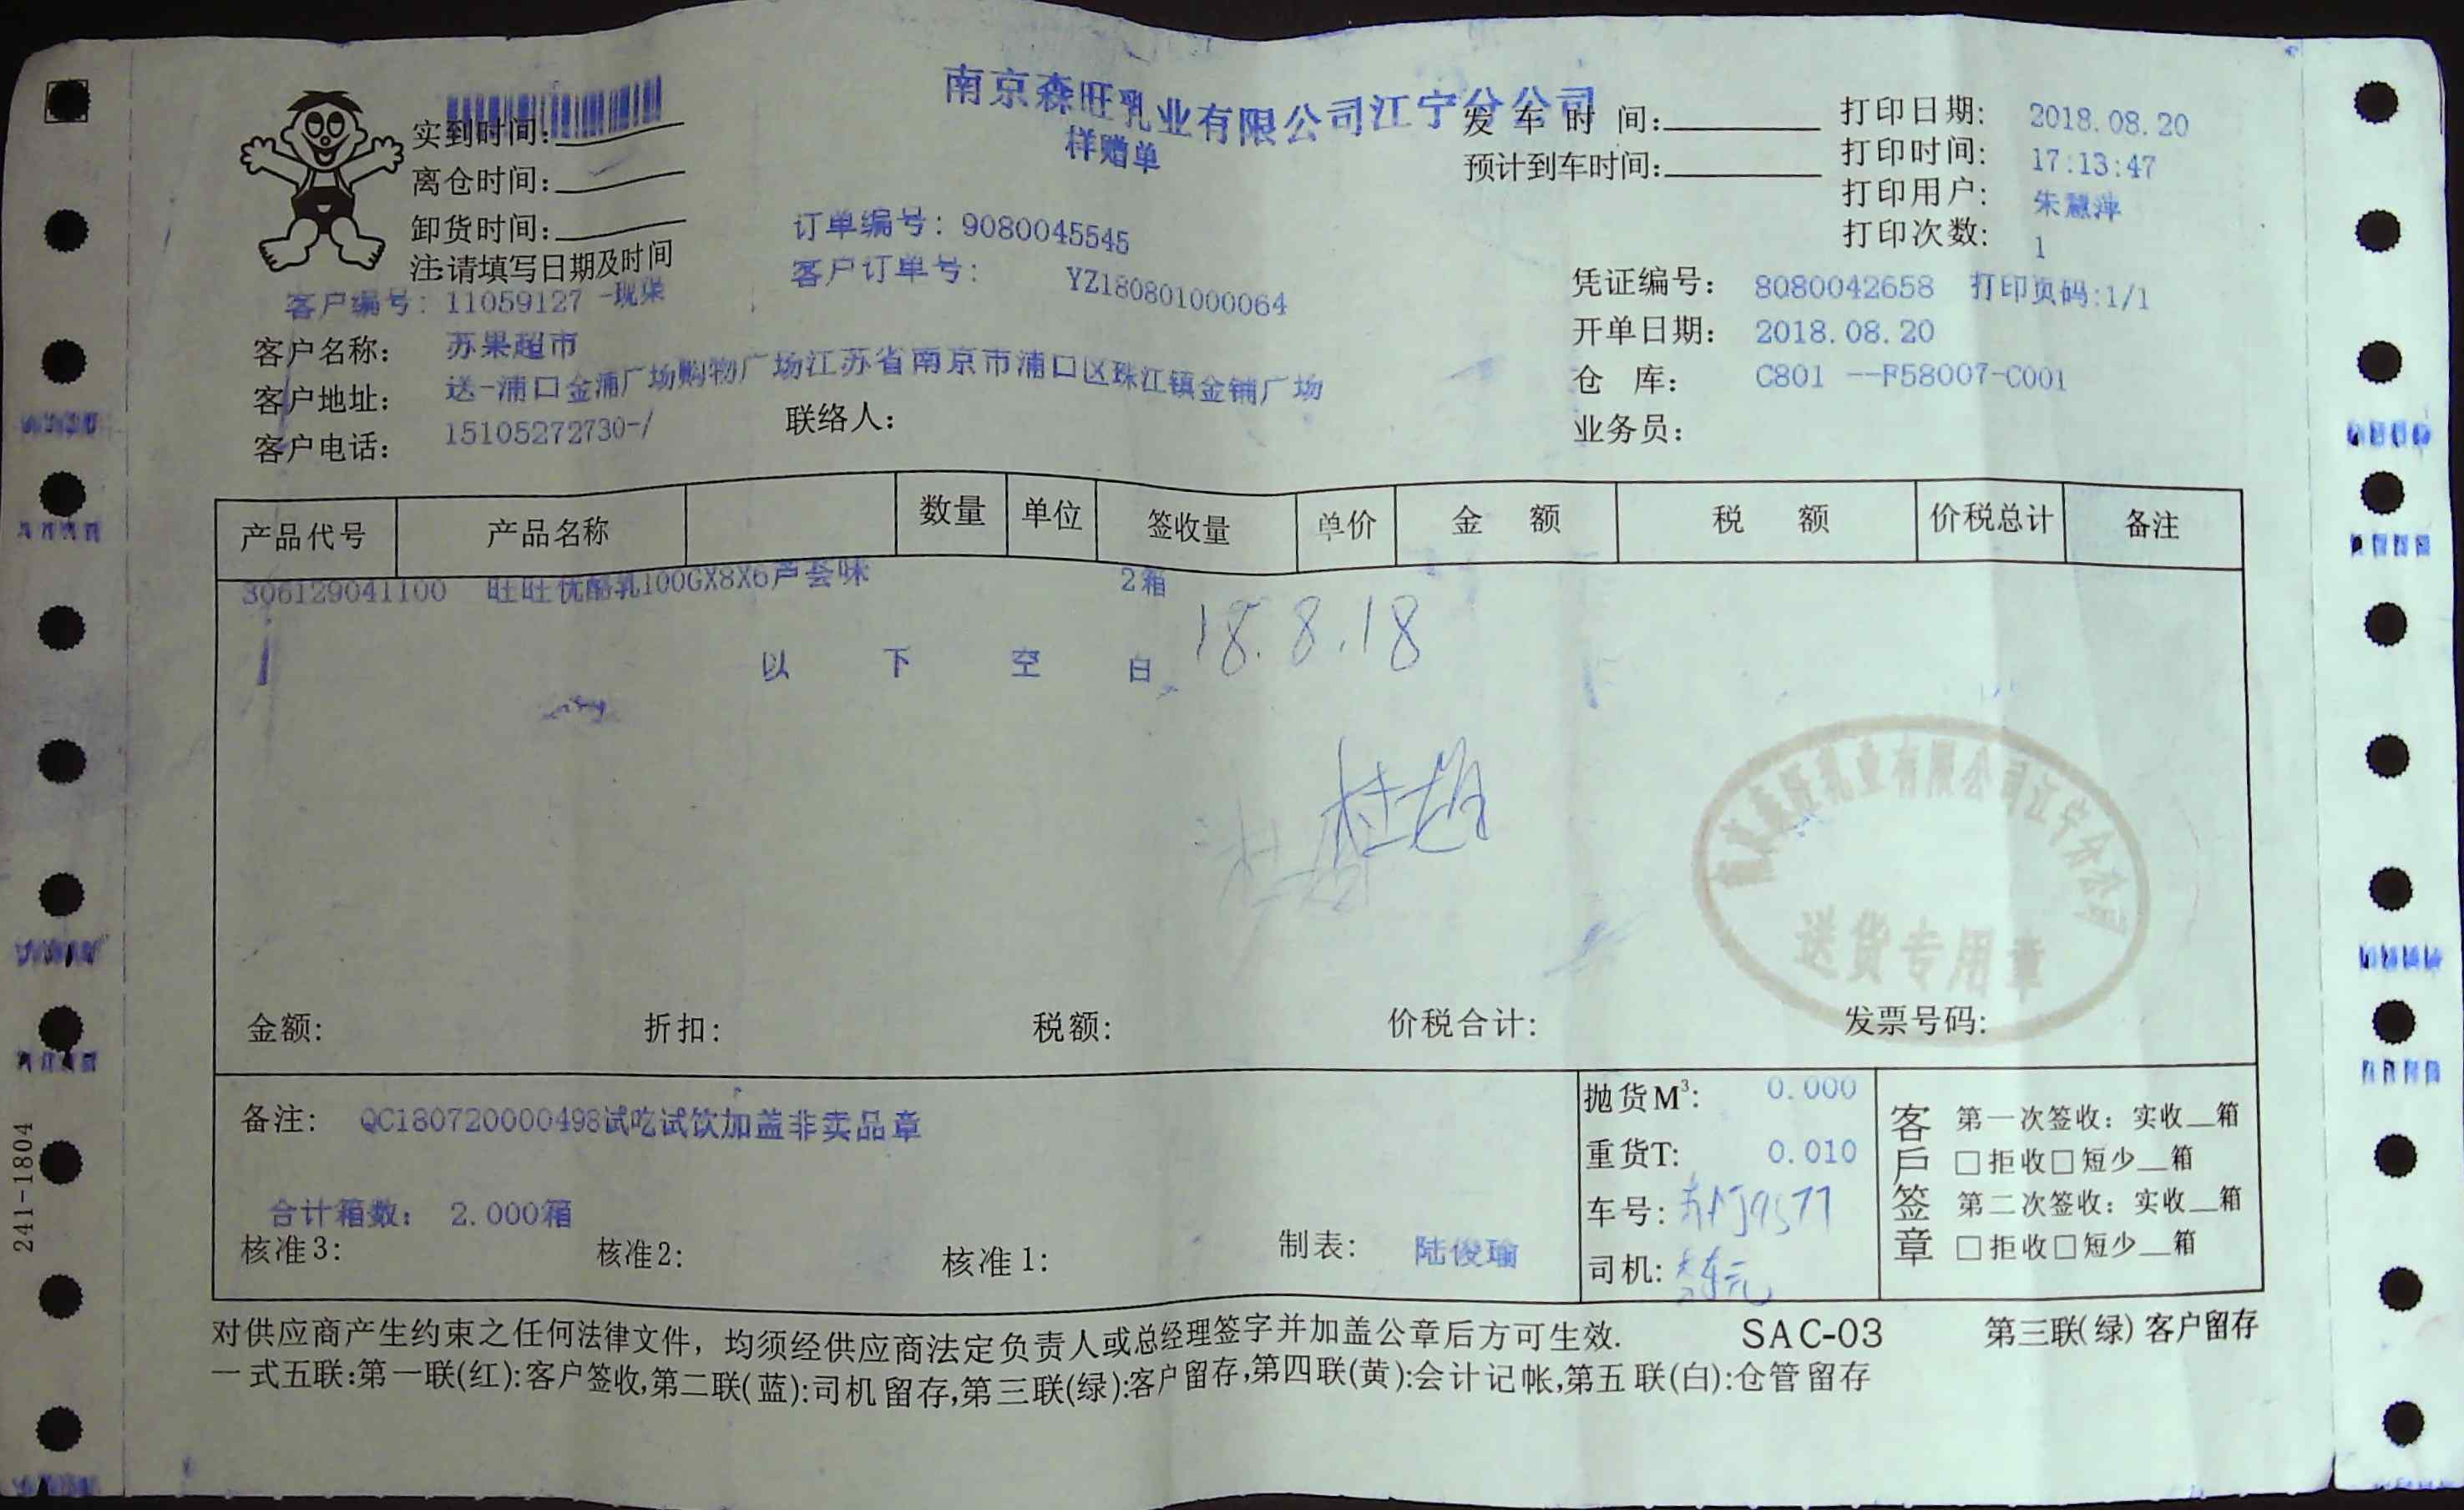 南京森旺乳业有限公司江宁分公司
样赠单
实到时间:
离仓时间:
卸货时间:
注:请填写日期及时间
发车时间:
预计到车时间:
打印日期: 2018.08.20
打印时间: 17:13:47
打印用户: 朱慧萍
打印次数: 1
订单编号: 9080045545
客户订单号: YZ180801000064
客户编号: 11059127 -现渠
客户名称: 苏果超市
客户地址: 送-浦口金浦广场购物广场江苏省南京市浦口区珠江镇金铺广场
客户电话: 15105272730-/
联络人:
凭证编号: 8080042658 打印页码:1/1
开单日期: 2018.08.20
仓 库: C801 --F58007-C001
业务员:
产品代号 产品名称 数量 单位 签收量 单价 金 额 税 额 价税总计 备注
306129041100 旺旺优酪乳100GX8X6芦荟味 2箱
18.8.18
以 下 空 白
南京森旺乳业有限公司江宁分公司
送货专用章
金额: 折扣: 税额: 价税合计: 发票号码:
备注: QC180720000498试吃试饮加盖非卖品章
合计箱数: 2.000箱
核准3: 核准2: 核准1: 制表: 陆俊瑜
抛货M³: 0.000
重货T: 0.010
车号:
司机:
客戶签章
第一次签收: 实收__箱
□拒收□短少__箱
第二次签收: 实收__箱
□拒收□短少__箱
对供应商产生约束之任何法律文件, 均须经供应商法定负责人或总经理签字并加盖公章后方可生效. SAC-03 第三联(绿) 客户留存
一式五联:第一联(红):客户签收,第二联(蓝):司机留存,第三联(绿):客户留存,第四联(黄):会计记帐,第五联(白):仓管留存
241-1804